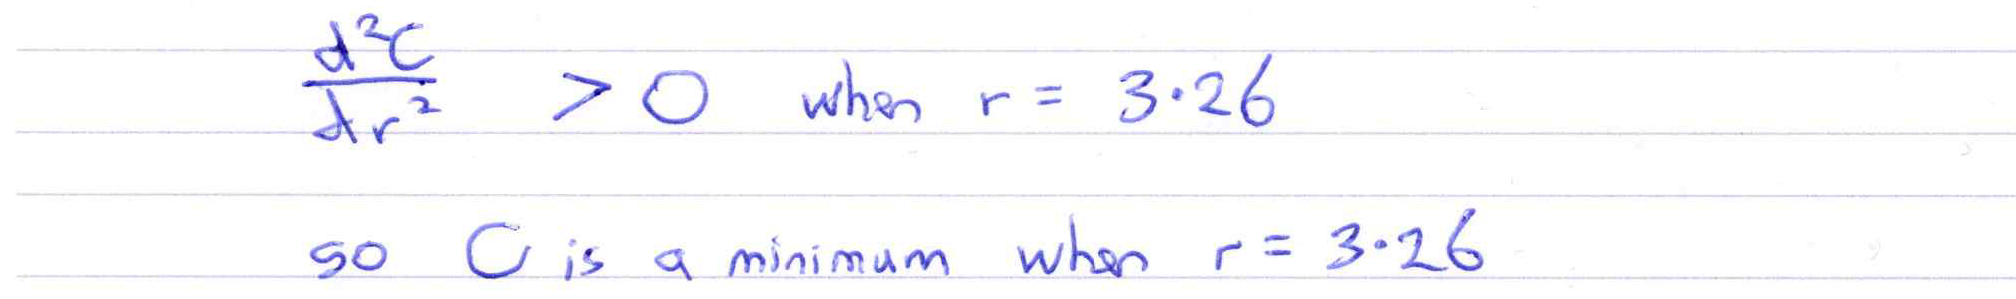 d²C/dr² > 0 when r = 3·26
so C is a minimum when r = 3·26